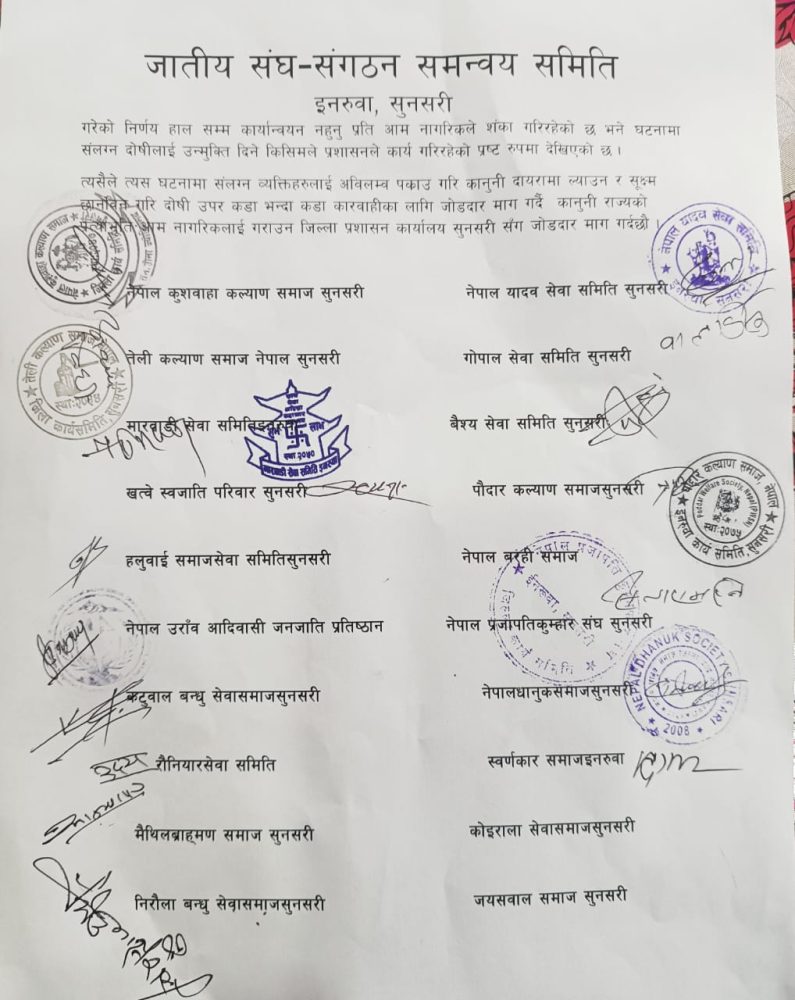 जातीय संघ-संगठन समन्वय समिति
इनरुवा, सुनसरी
गरेको निर्णय हाल सम्म कार्यान्वयन नहुनु प्रति आम नागरिकले शंका गरिरहेको छ भने घटनामा
संलग्न दोषीलाई उन्मुक्ति दिने किसिमले प्रशासनले कार्य गरिरहेको प्रष्ट रुपमा देखिएको छ ।
त्यसैले त्यस घटनामा संलग्न व्यक्तिहरुलाई अविलम्ब पकाउ गरि कानुनी दायरामा ल्याउन र सूक्ष्म
छानविन गरि दोषी उपर कडा भन्दा कडा कारवाहीका लागि जोडदार माग गर्दै कानुनी राज्यको
आम नागरिकलाई गराउन जिल्ला प्रशासन कार्यालय सुनसरी सँग जोडदार माग गर्दछौ ।
नेपाल कुशवाहा कल्याण समाज सुनसरी नेपाल यादव सेवा समिति सुनसरी
तेली कल्याण समाज नेपाल सुनसरी गोपाल सेवा समिति सुनसरी
मारवाडी सेवा समितिइनरुवा बैश्य सेवा समिति सुनसरी
खत्वे स्वजाति परिवार सुनसरी पौदार कल्याण समाजसुनसरी
हलुवाई समाजसेवा समितिसुनसरी नेपाल बरही समाज
नेपाल उराँव आदिवासी जनजाति प्रतिष्ठान नेपाल प्रजापतिकुम्हार संघ सुनसरी
कटुवाल बन्धु सेवासमाजसुनसरी नेपालधानुकसमाजसुनसरी
रौनियारसेवा समिति स्वर्णकार समाजइनरुवा
मैथिलब्राह्मण समाज सुनसरी कोइराला सेवासमाजसुनसरी
निरौला बन्धु सेवासमाजसुनसरी जयसवाल समाज सुनसरी
नेपाल यादव सेवा समिति
तेली कल्याण समाज
जिल्ला कार्यसमिति, सुनसरी
मारवाडी सेवा समिति इनरुवा
स्था २०५०
पोदार कल्याण समाज, नेपाल
Podar Welfare Society, Nepal
स्था:२०७५
इनरुवा कार्य समिति, सुनसरी
नेपाल प्रजापति
NEPAL DHANUK SOCIETY, SUNSARI
2008